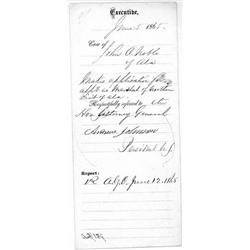 Executive,
June 5 1865.
Case of
John A. Noble
of Ala
Makes application for
appt as Marshal of Northern
Dist of Ala.
Respectfully referred to the
Hon Attorney General
Andrew Johnson
President U.S.
Report:
A.G.O. June 12. 1865